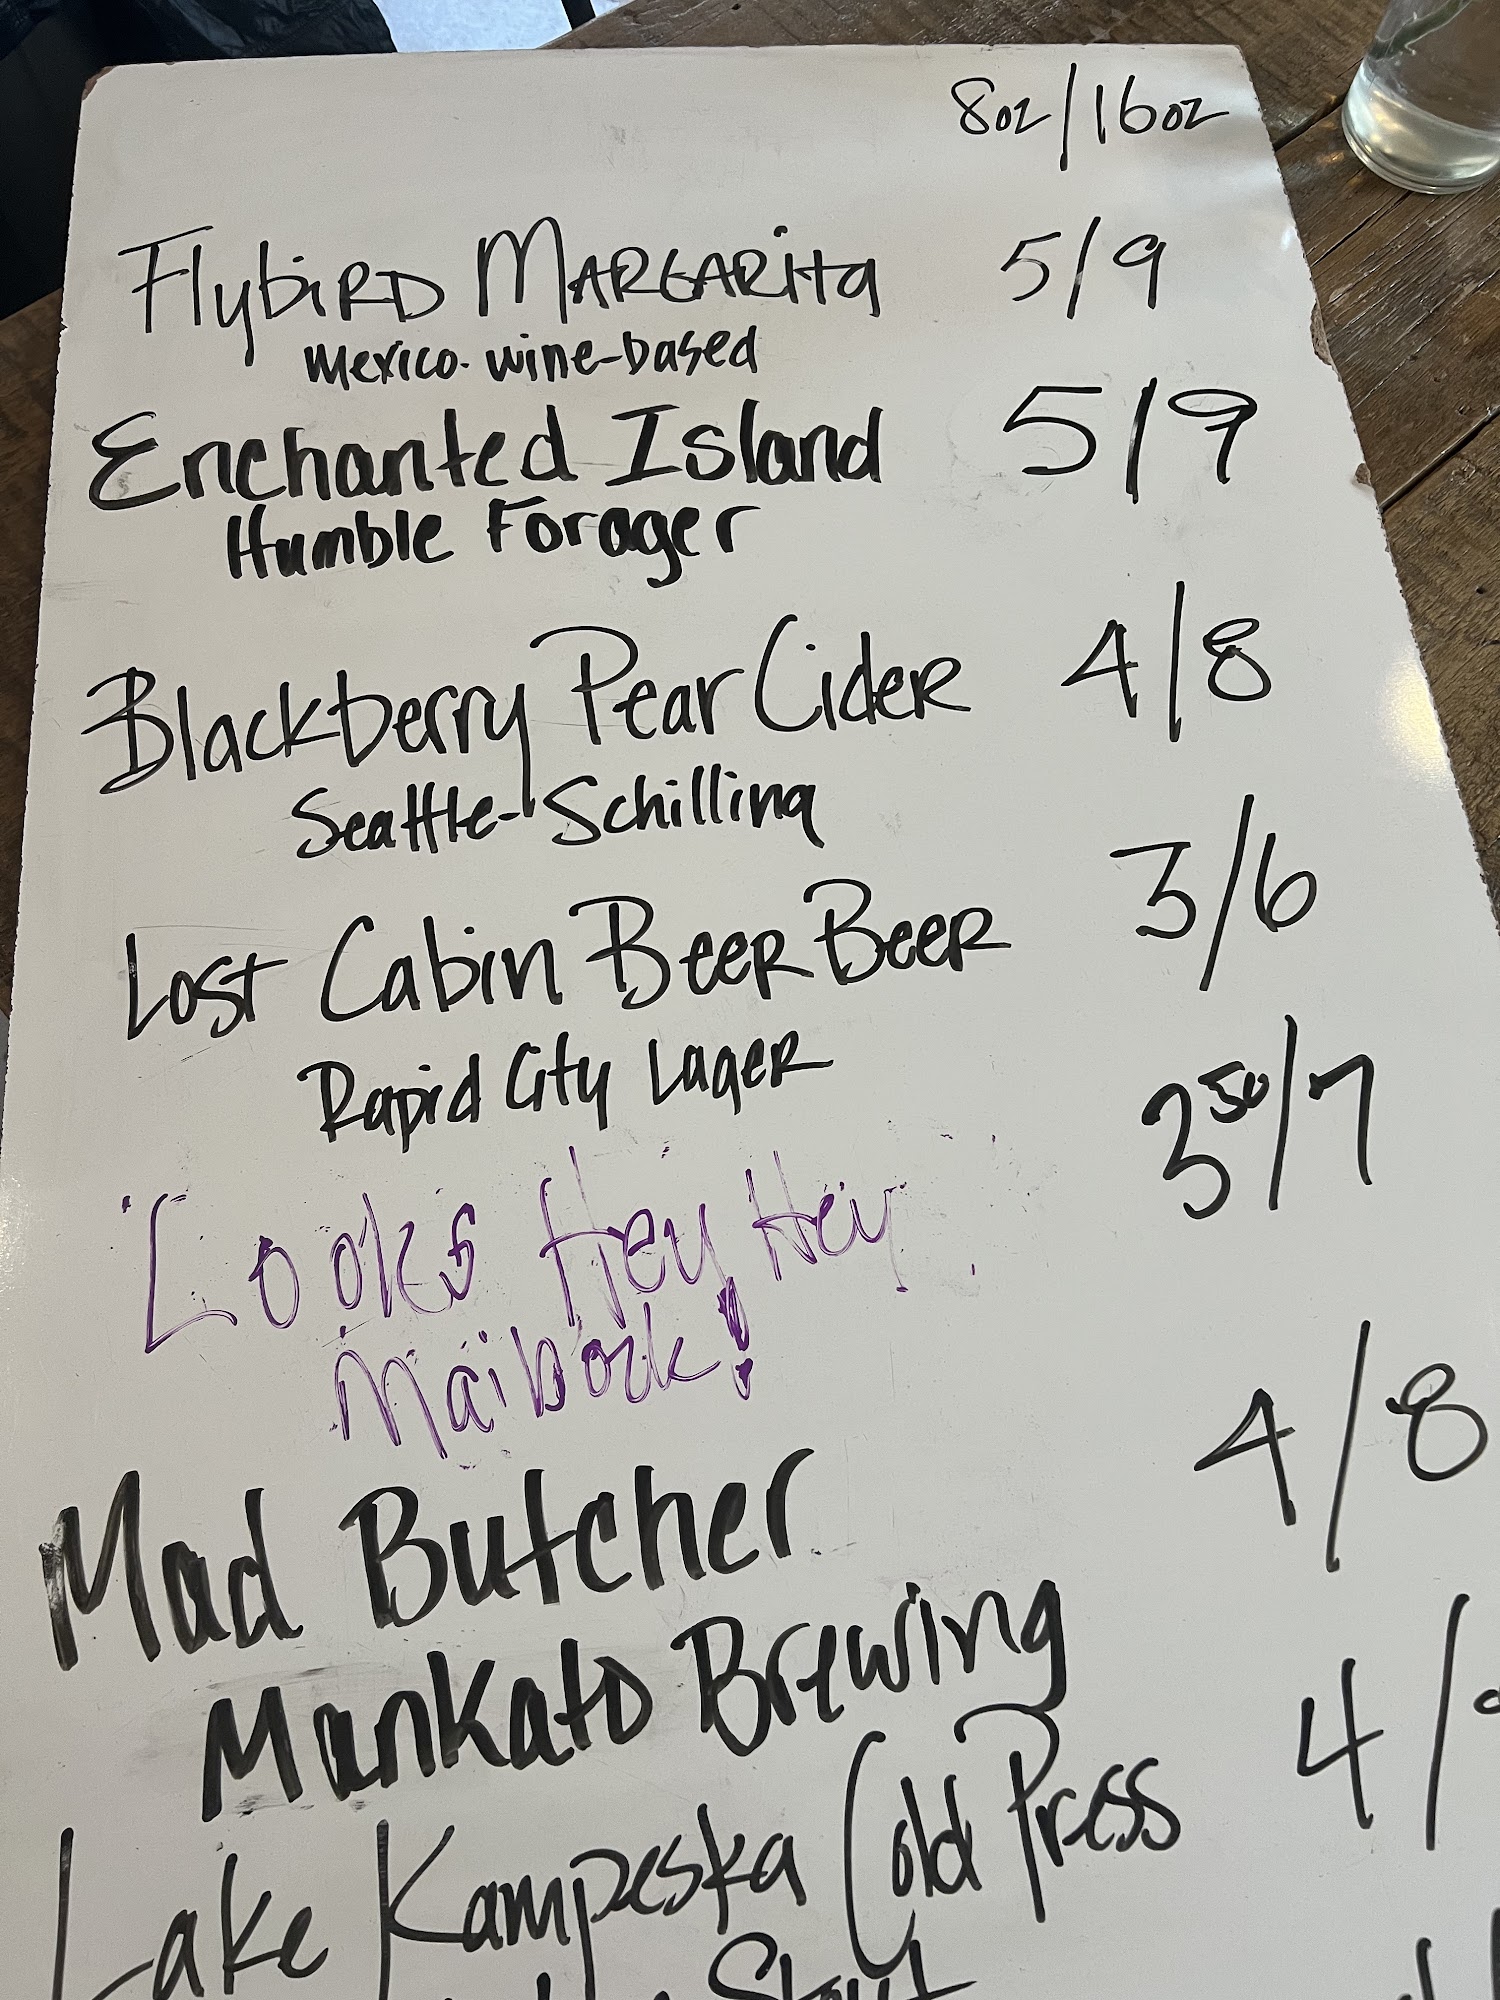 8oz/16oz
Flybird Margarita 5/9
Mexico. wine-based
Enchanted Island 5/9
Humble Forager
Blackberry Pear Cider 4/8
Seattle-Schilling
Lost Cabin Beer Beer 3/6
Rapid City Lager
Looks Hey Hey 3 50/7
Maibock!
Mad Butcher 4/8
Mankato Brewing
Lake Kampeska Cold Press 4/
Stout